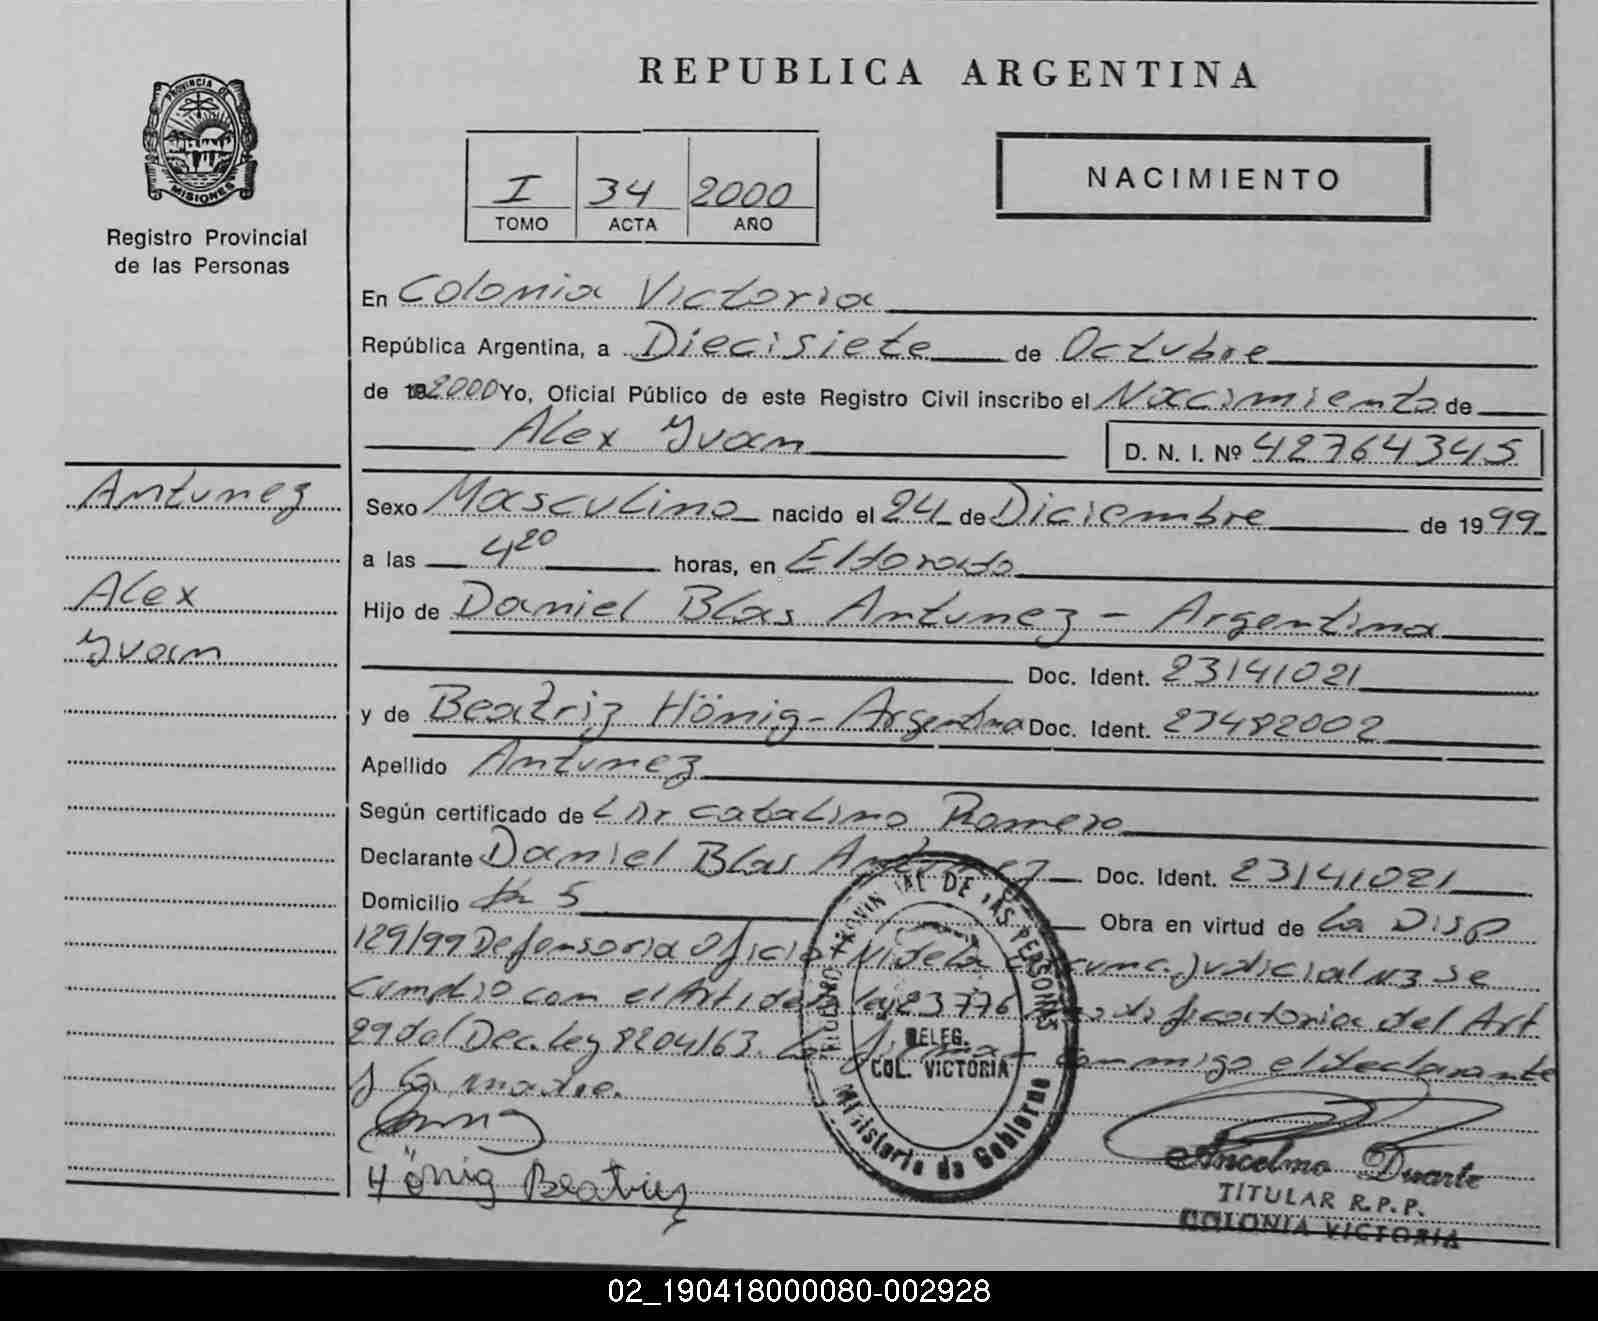 REPUBLICA ARGENTINA
PROVINCIA DE
MISIONES
Registro Provincial
de las Personas
I 34 2000
TOMO ACTA AÑO
NACIMIENTO
En Colonia Victoria
República Argentina, a Diecisiete de Octubre
de 19 2000 Yo, Oficial Público de este Registro Civil inscribo el Nacimiento de
Alex Yvan
D. N. I. Nº 42764345
Antunez
Alex
Yvan
Sexo Masculino nacido el 24 de Diciembre de 1999
a las 4 20 horas, en Eldorado
Hijo de Daniel Blas Antunez - Argentina
Doc. Ident. 23141021
y de Beatriz Hönig - Argentina Doc. Ident. 23482002
Apellido Antunez
Según certificado de Catalino Romero
Declarante Daniel Blas Antunez Doc. Ident. 23141021
Domicilio Km 5 Obra en virtud de La Disp
129/99 Defensoria Oficial de la judicial N3 se
cumplio con el Art 1 de la ley 23776 modificatoria del Art
29 del Dec. Ley 8204/63. La firma conmigo el declarante
y la madre.
Hönig Beatriz
DE LAS PERSONAS
DELEG.
COL. VICTORIA
Ministerio de Gobierno
Ancelmo Duarte
TITULAR R.P.P.
COLONIA VICTORIA
02_190418000080-002928